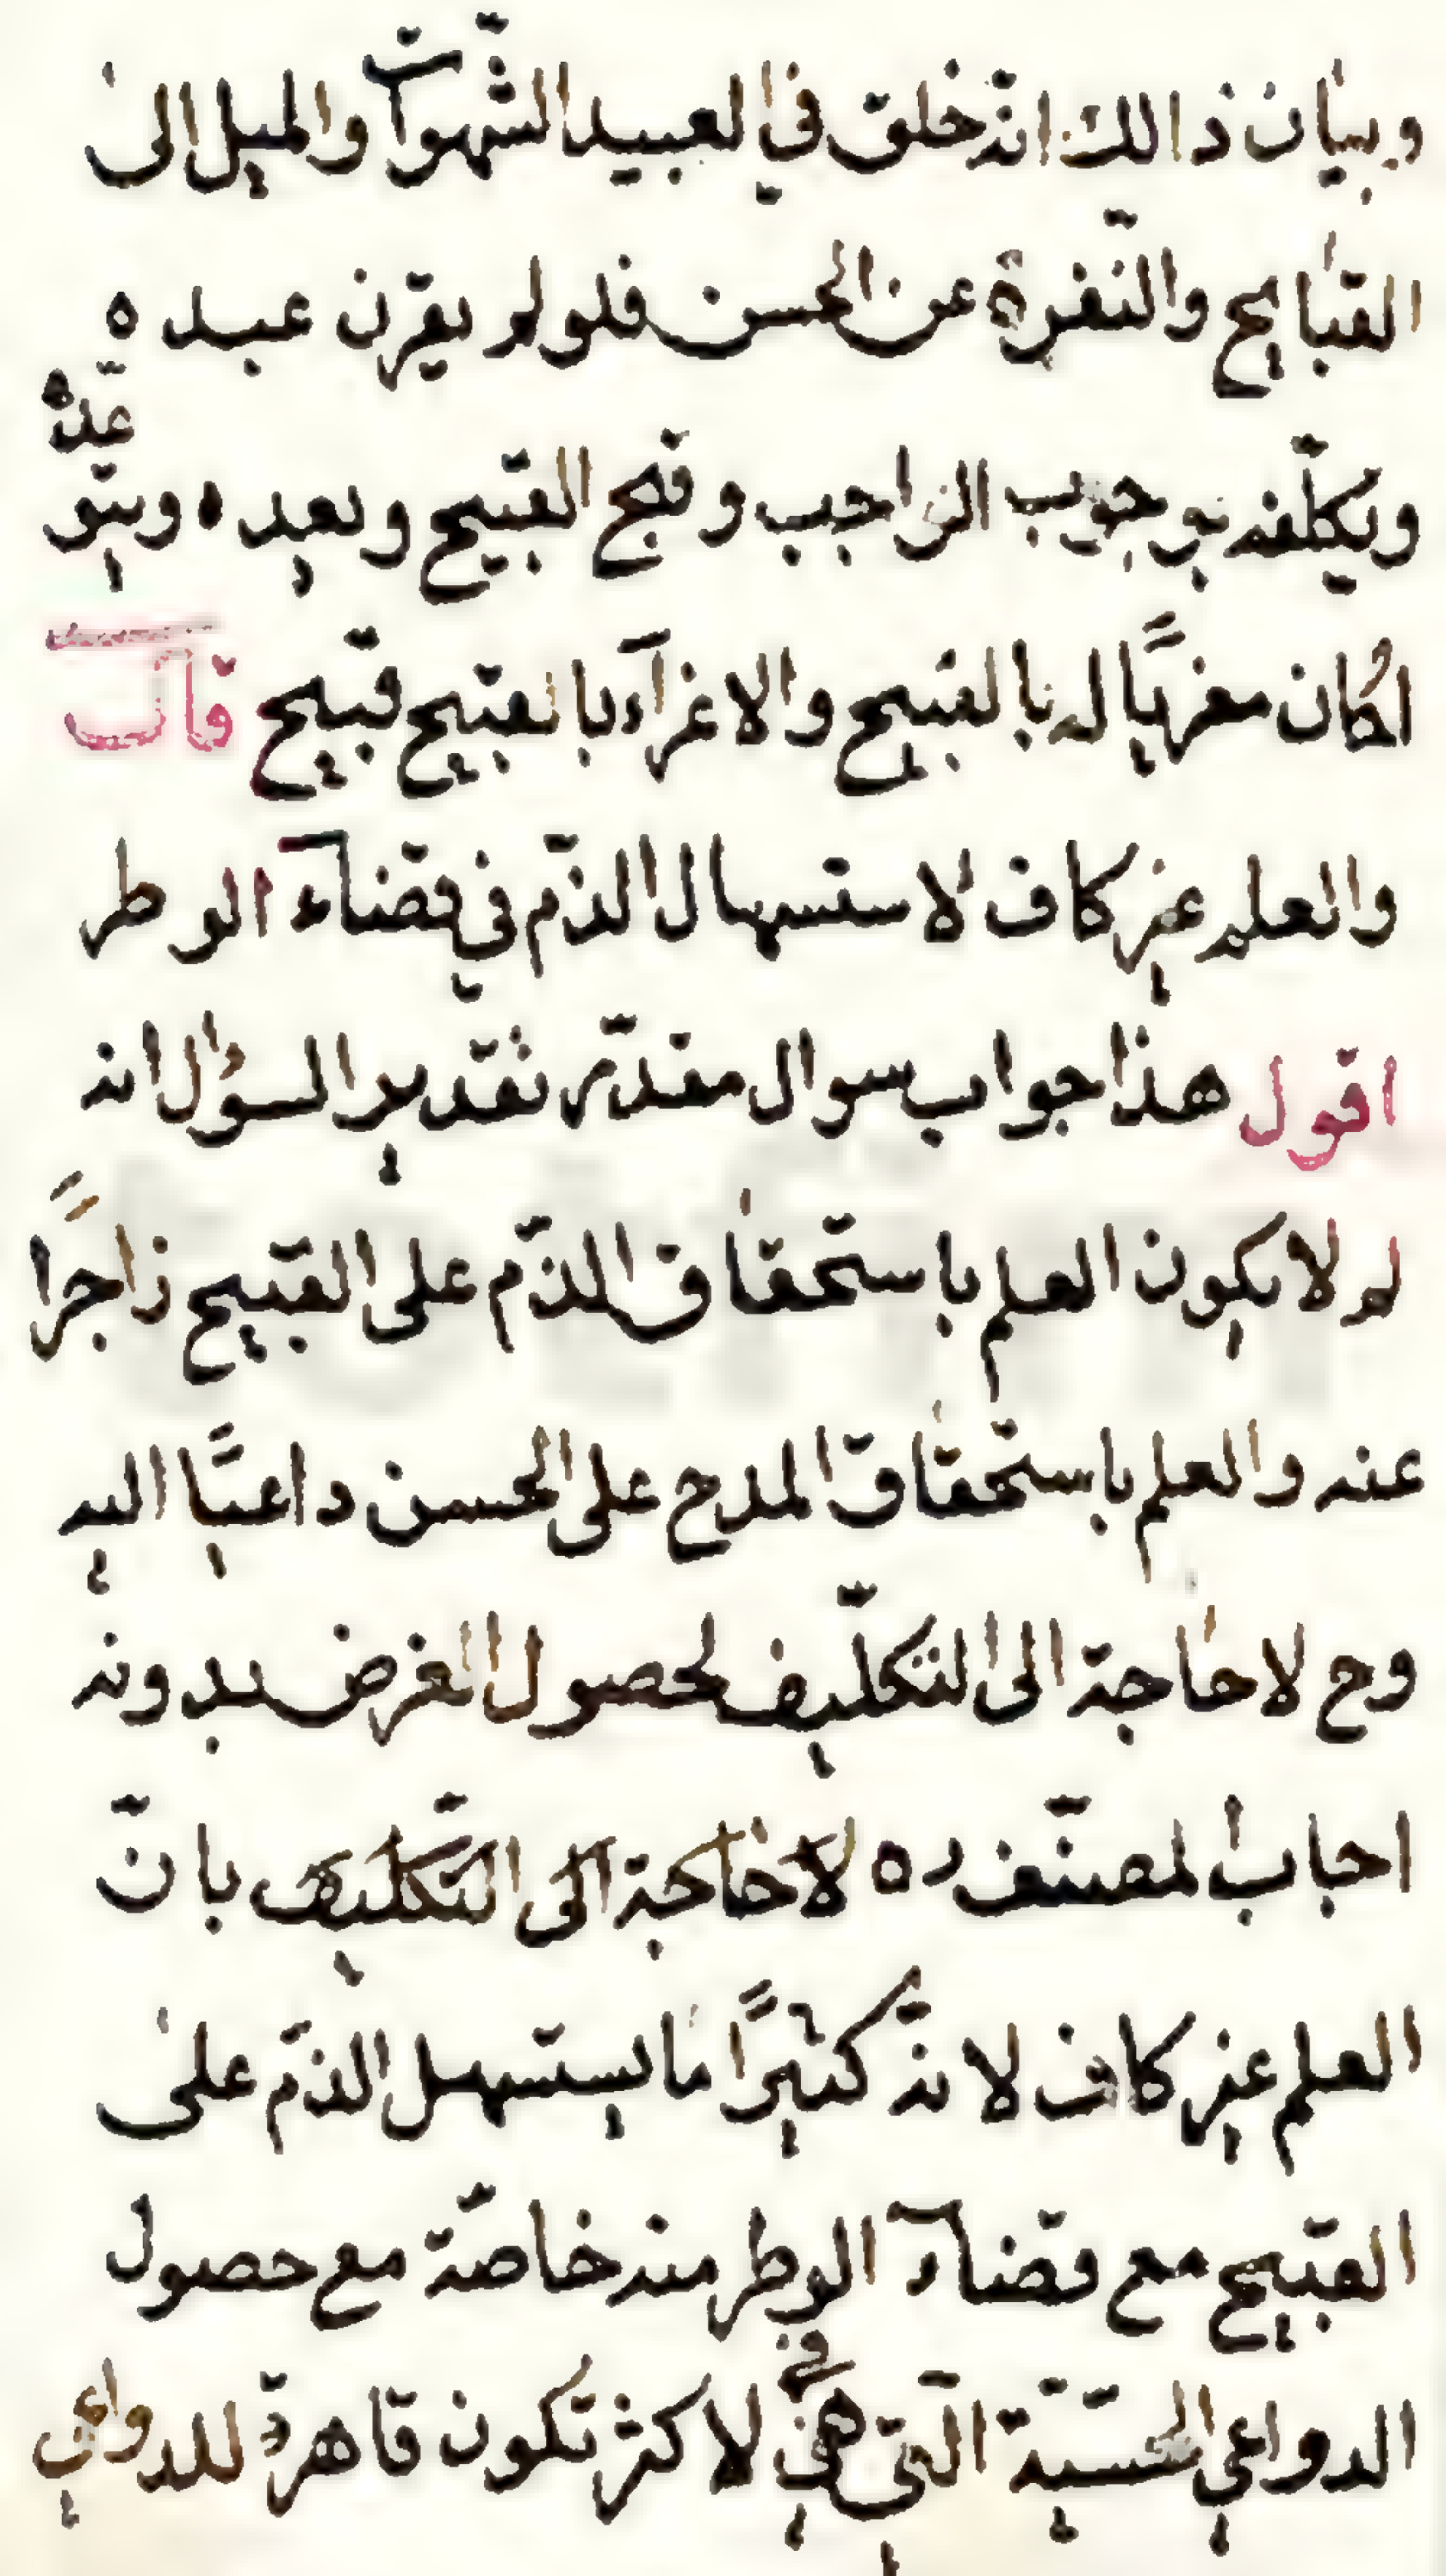 وبيان ذالك انّه خلق في العبيد الشّهوات والميل الى
القبايح والنّفرة عن الحسن فلو لم يقرن عبده
ويكلّفه بوجوب الواجب وقبح القبيح ويعده ويتو
عّده
لكان مغريًا له بالقبيح والاغرآء بالقبيح قبيح قال
والعلم غير كاف لاستسهال الذّم في قضآء الوطر
اقول هذا جواب سوال مقدّر تقدير السؤال انه
لم لا يكون العلم باستحقاق الذّم على القبيح زاجرًا
عنه والعلم باستحقاق المدح على الحسن داعيًا اليه
وح لا حاجة الى التكلّيف لحصول الغرض بدونه
اجاب لمصنّف ره لا حاجة الى التكليف بانّ
العلم غير كاف لانّه كثيرًا ما يستسهل الذّم على
القبيح مع قضآء الوطر منه خاصّة مع حصول
الدواعي الحسّيّة الّتي هي في لاكثر تكون قاهرة للدواعي